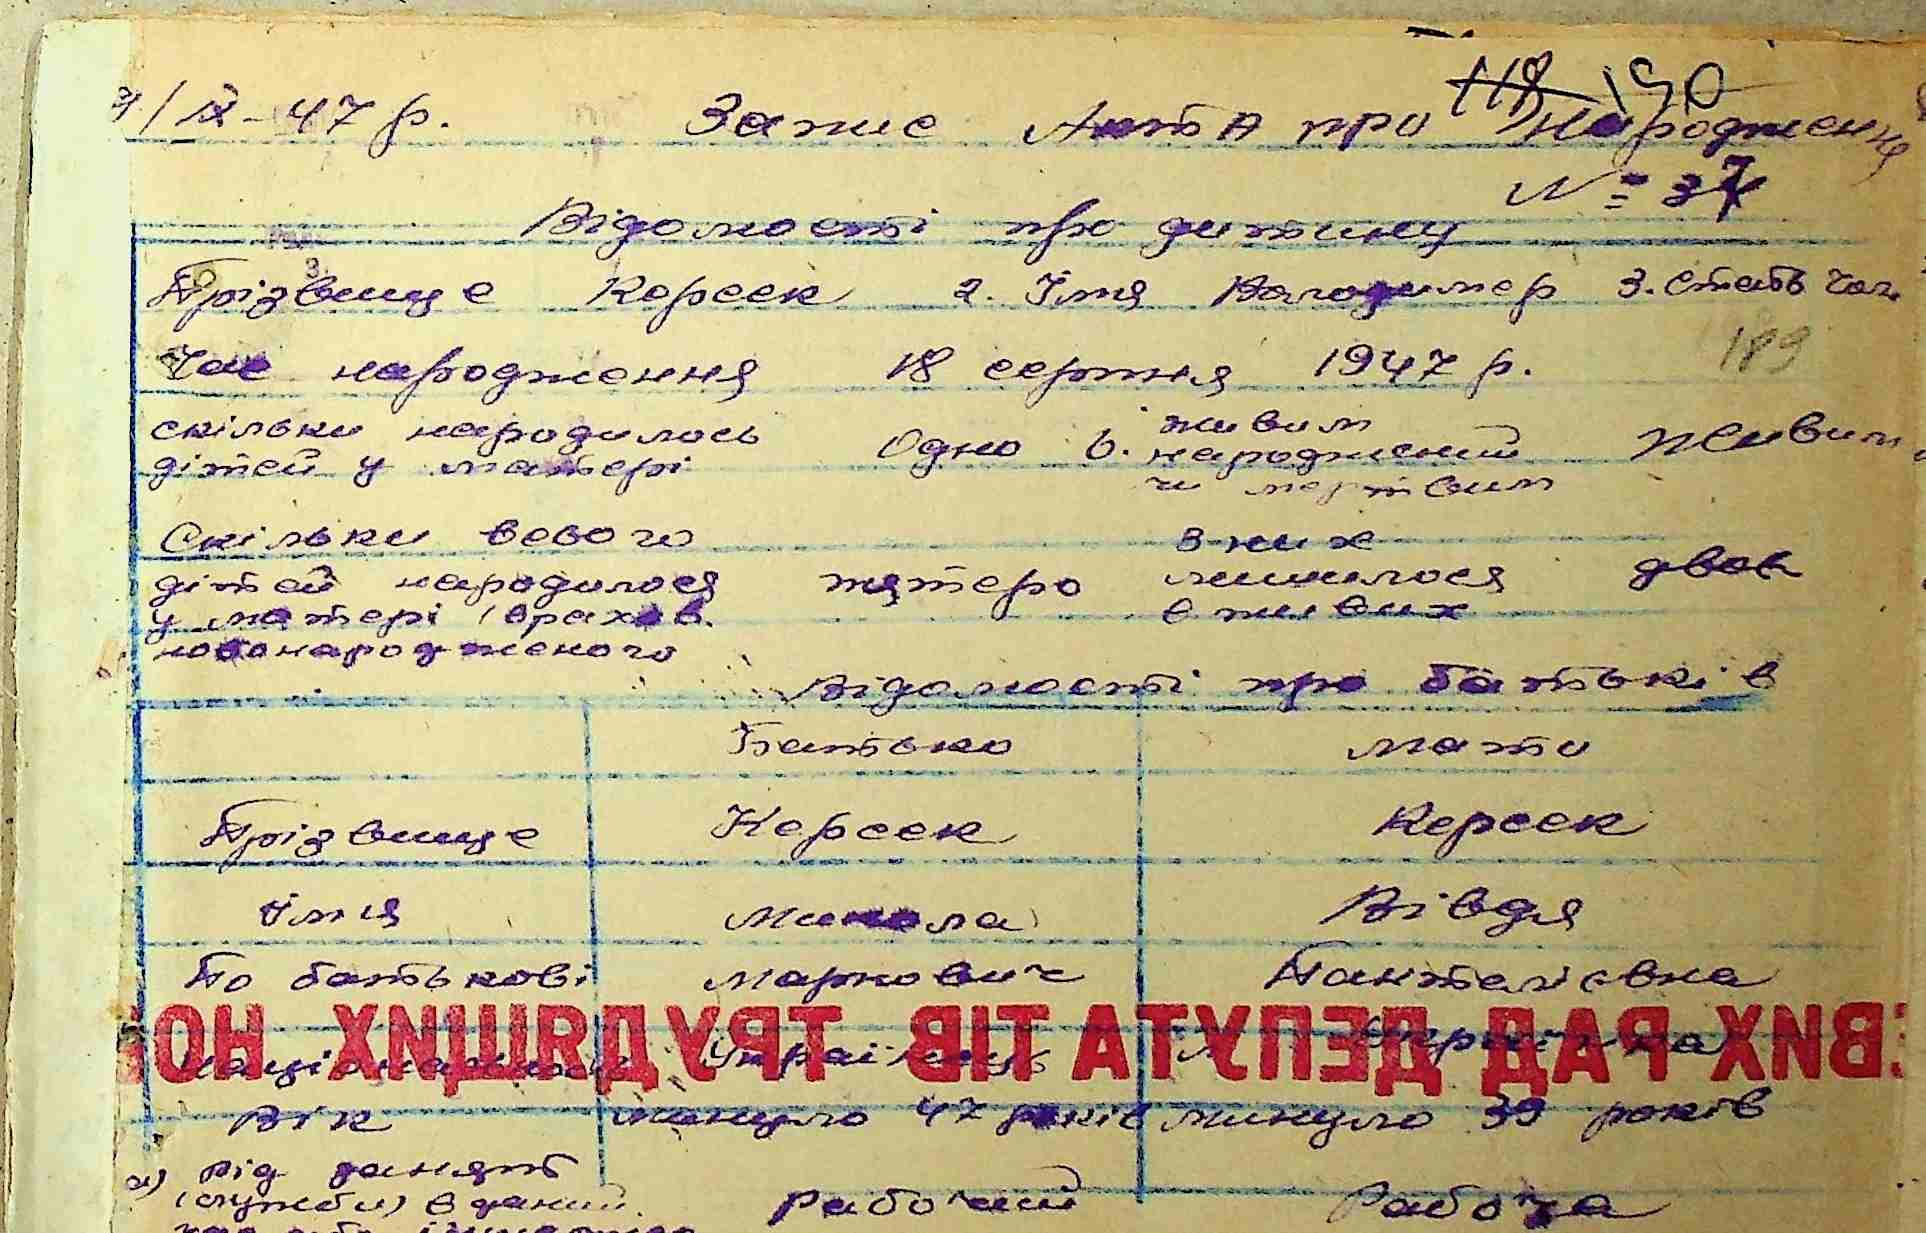 /IX-47 р. Запис Акта про народження
118 190
№ 37
Відомості про дитину
Прізвище Керсек 2. Імя Володимер 3. стать чол.
Час народження 18 серпня 1947 р.
189
скільки народилось дітей у матері Одно 6. живим народжений чи мертвим живим
Скільки всього дітей народилося у матері (врахов. новонародженого пятеро з них лишилося в живих двоє
Відомості про батьків
Батько Мати
Прізвище Керсек Керсек
Імя Микола Вівдя
По батькові Маркович Пантеліевна
ЕВИХ РАД ДЕПУТАТІВ ТРУДЯЩИХ НОВ
національність Українець Українка
Вік минуло 47 років минуло 39 років
а) Рід занять
(служби) в даний Рабочий Рабоча